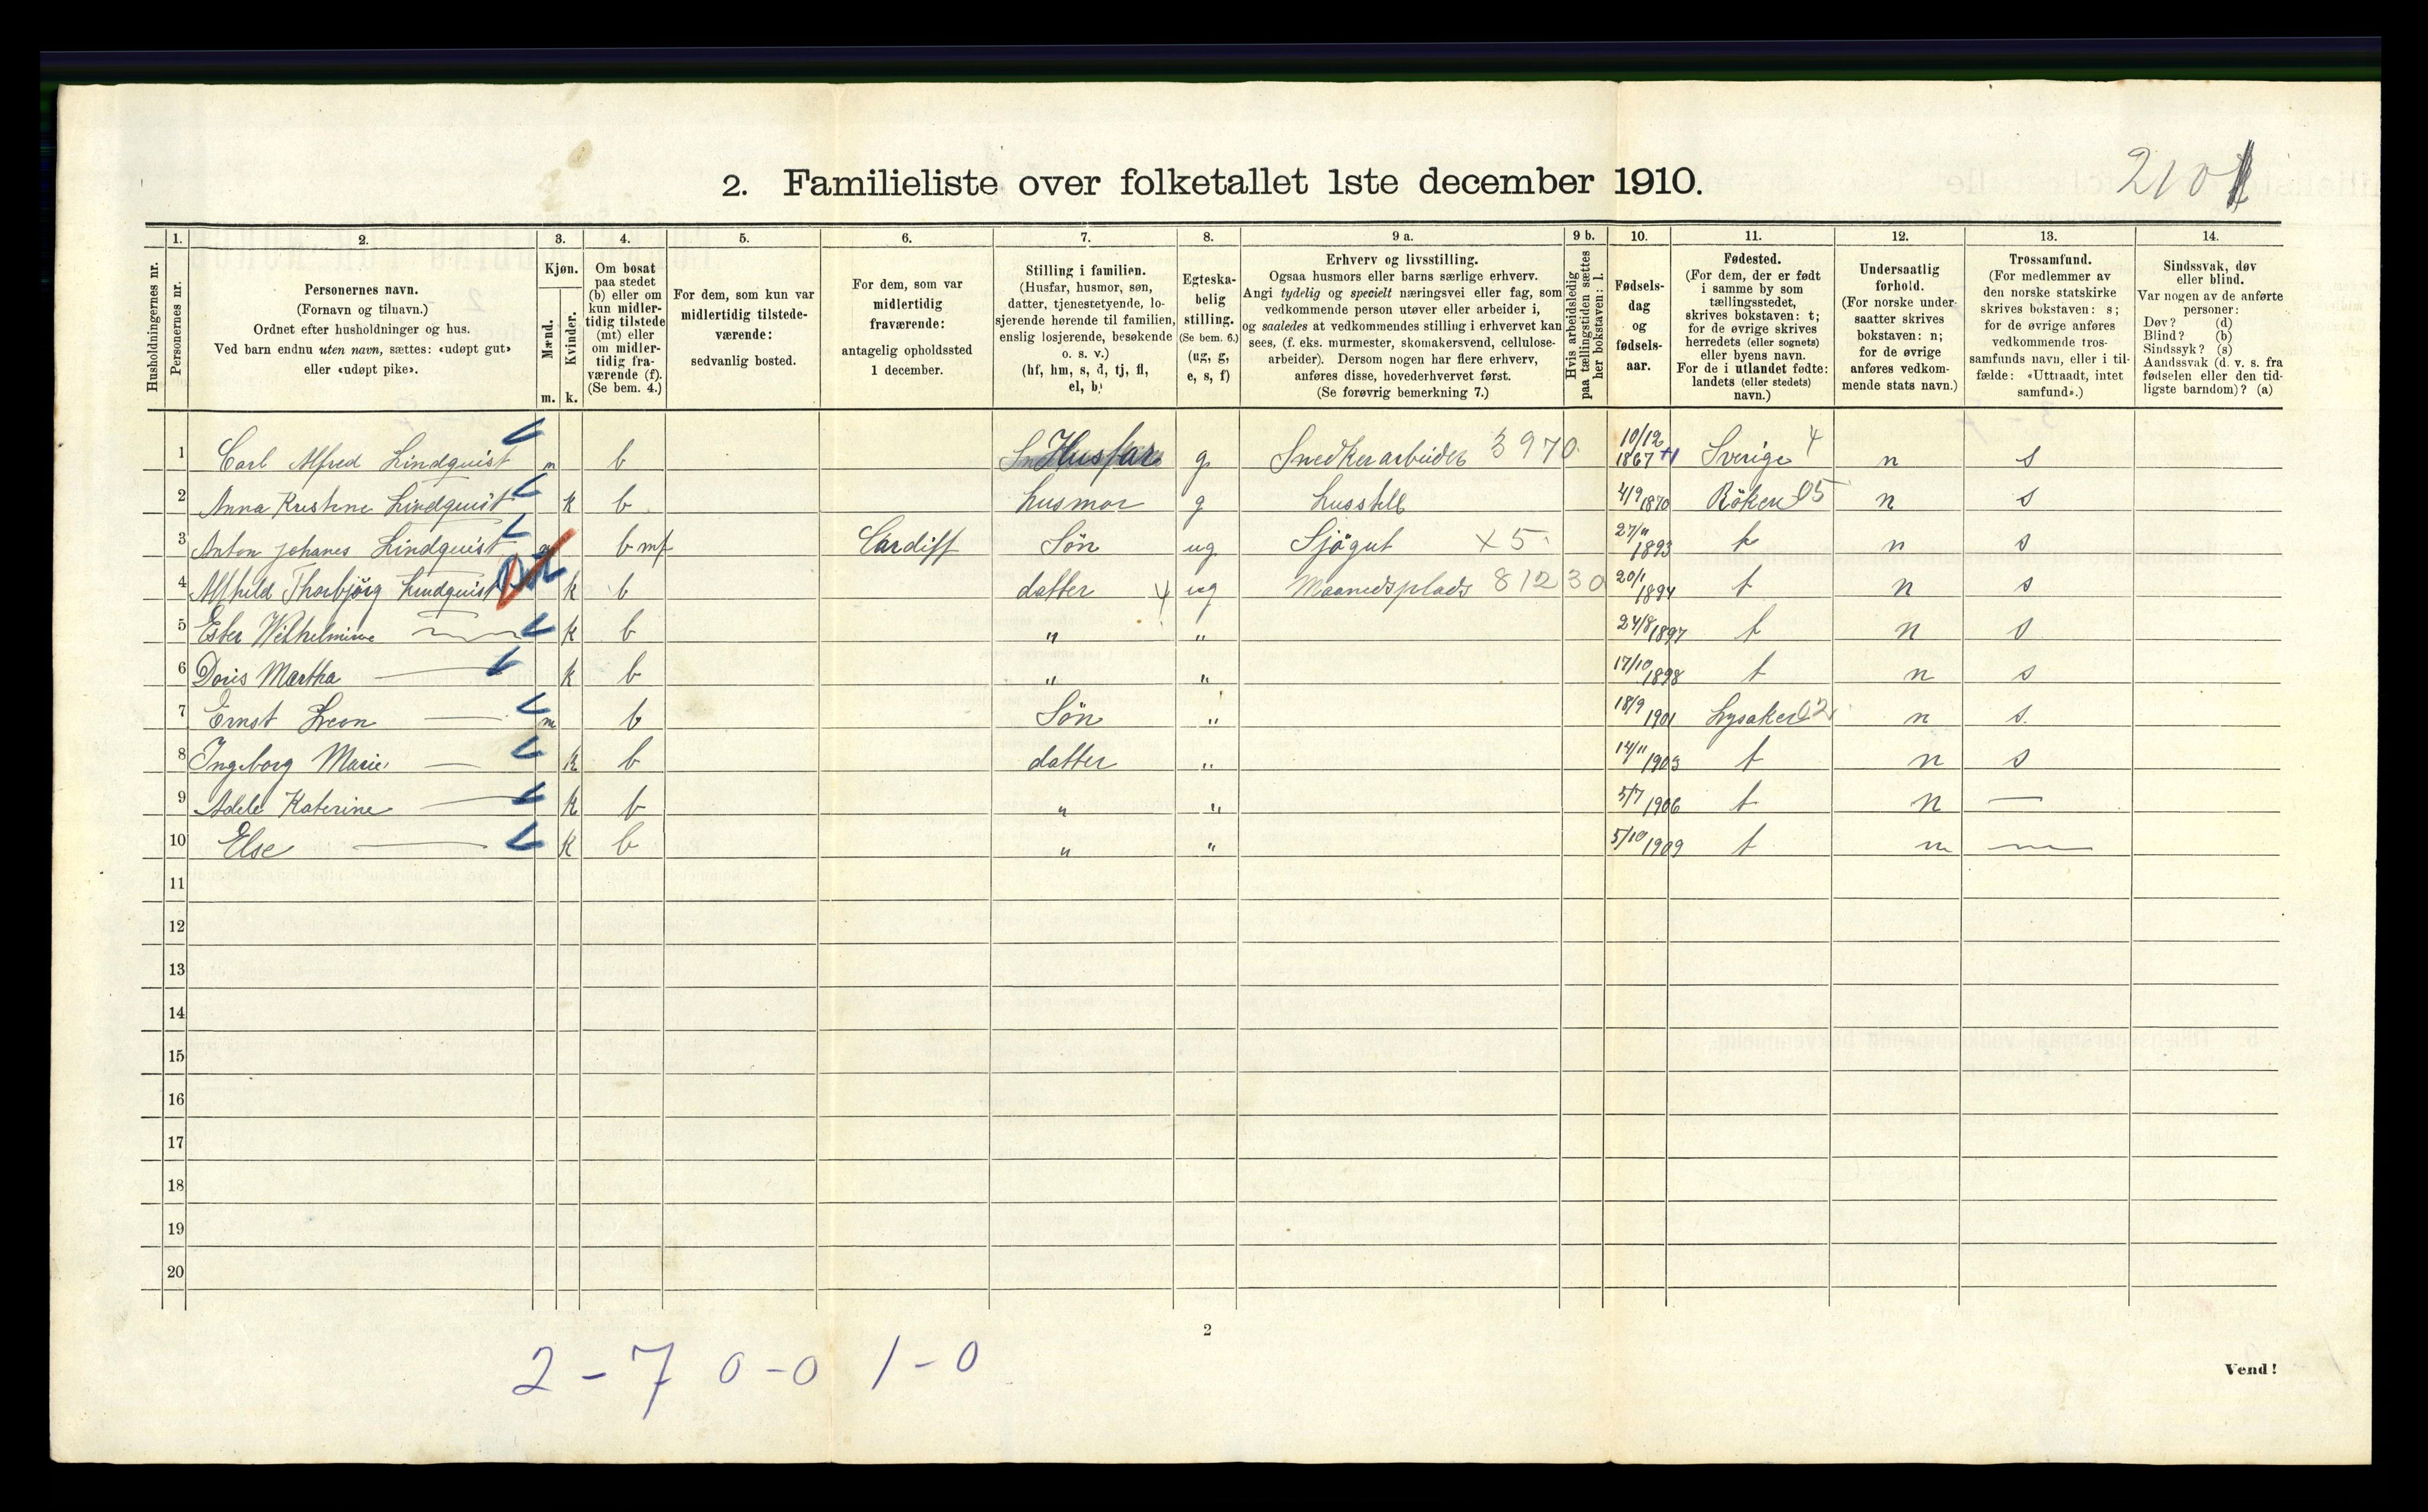 2. Familieliste over folketallet 1ste december 1910.
210
1. 2. 3. 4. 5. 6. 7. 8. 9 a. 9 b. 10. 11. 12. 13. 14.
Husholdningernes nr.
Personernes nr.
Personernes navn.
(Fornavn og tilnavn.)
Ordnet efter husholdninger og hus.
Ved barn endnu uten navn, sættes: «udøpt gut»
eller «udøpt pike».
Kjøn.
Mænd.
Kvinder.
m. k.
Om bosat
paa stedet
(b) eller om
kun midler-
tidig tilstede
(mt) eller
om midler-
tidig fra-
værende (f).
(Se bem. 4.)
For dem, som kun var
midlertidig tilstede-
værende:
sedvanlig bosted.
For dem, som var
midlertidig
fraværende:
antagelig opholdssted
1 december.
Stilling i familien.
(Husfar, husmor, søn,
datter, tjenestetyende, lo-
sjerende hørende til familien,
enslig losjerende, besøkende
o. s. v.)
(hf, hm, s, d, tj, fl,
el, b)
Egteska-
belig
stilling.
(Se bem. 6.)
(ug, g,
e, s, f)
Erhverv og livsstilling.
Ogsaa husmors eller barns særlige erhverv.
Angi tydelig og specielt næringsvei eller fag, som
vedkommende person utøver eller arbeider i,
og saaledes at vedkommendes stilling i erhvervet kan
sees, (f. eks. murmester, skomakersvend, cellulose-
arbeider). Dersom nogen har flere erhverv,
anføres disse, hovederhvervet først.
(Se forøvrig bemerkning 7.)
Hvis arbeidsledig
paa tællingstiden sættes
her bokstaven: l.
Fødsels-
dag
og
fødsels-
aar.
Fødested.
(For dem, der er født
i samme by som
tællingsstedet,
skrives bokstaven: t;
for de øvrige skrives
herredets (eller sognets)
eller byens navn.
For de i utlandet fødte:
landets (eller stedets)
navn.)
Undersaatlig
forhold.
(For norske under-
saatter skrives
bokstaven: n;
for de øvrige
anføres vedkom-
mende stats navn.)
Trossamfund.
(For medlemmer av
den norske statskirke
skrives bokstaven: s;
for de øvrige anføres
vedkommende tros-
samfunds navn, eller i til-
fælde: «Uttraadt, intet
samfund».)
Sindssvak, døv
eller blind.
Var nogen av de anførte
personer:
Døv? (d)
Blind? (b)
Sindssyk? (s)
Aandssvak (d. v. s. fra
fødselen eller den tid-
ligste barndom)? (a)
1 Carl Alfred Lindquist m b Husfar g Snedkerarbeider 3970 10/12 1867 Sverige 4 n s
2 Anna Kristine Lindquist k b husmor g husstell 4/9 1870 Röken 05 n s
3 Anton Johanes Lindquist b mf Cardiff Sön ug Sjögut x 5 27/11 1893 t n s
4 Alfhild Thorbjörg Lindquist k b datter ug Maanedsplads 81230 20/1 1894 t n s
5 Ester Wilhelmine k b " " 24/8 1897 t n s
6 Doris Martha — k b " " 17/10 1898 t n s
7 Ernst Leon — m b Sön " 18/9 1901 Lysaker 02 n s
8 Ingeborg Marie — k b datter " 14/11 1903 t n s
9 Adele Katerine — k b " " 5/7 1906 t n —
10 Else — k b " " 5/10 1909 t n —
11
12
13
14
15
16
17
18
19
20
2
2 - 7 0 - 0 1 - 0
Vend!